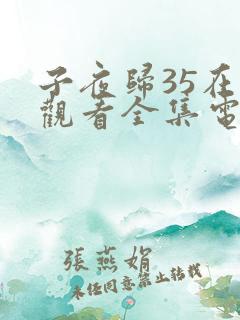 子夜歸35在
觀看全集電
張燕娟
未经同意禁止转载